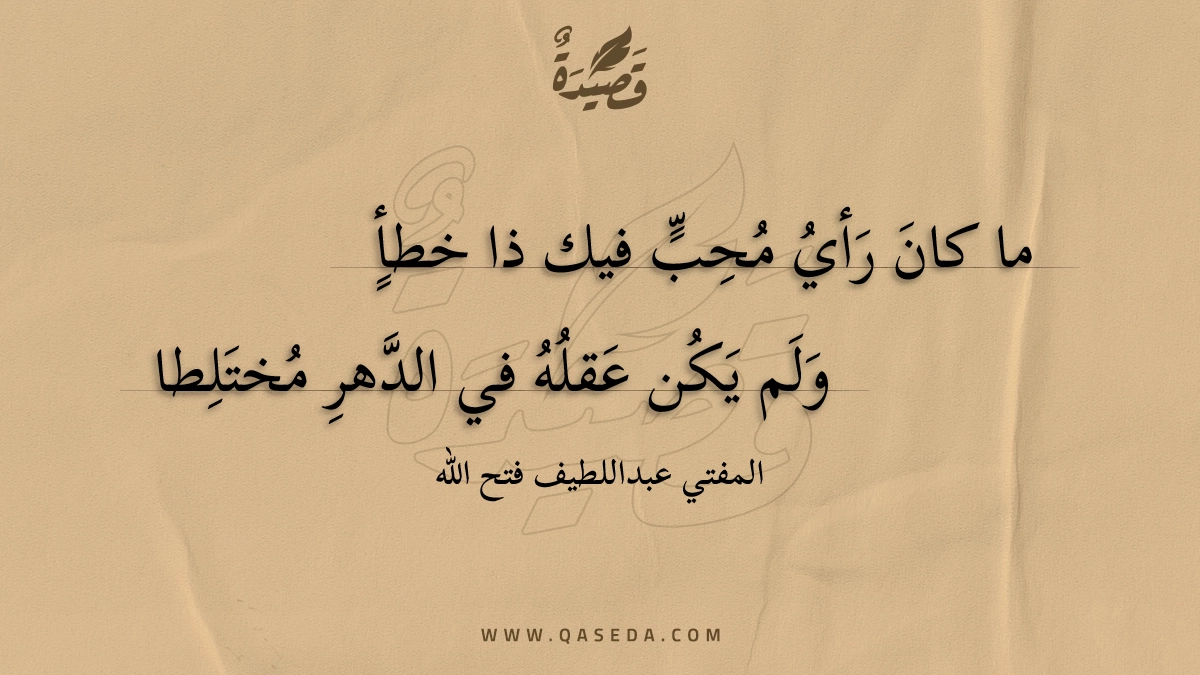 قَصِيدَةٌ
ما كانَ رَأيُ مُحِبٍّ فيك ذا خطأٍ
وَلَم يَكُن عَقلُهُ في الدَّهرِ مُختَلِطا
المفتي عبداللطيف فتح الله
WWW.QASEDA.COM